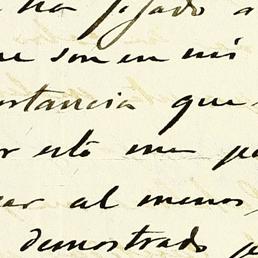 ha fijado a
ue son en mi
ortancia que
or esto me pa
ar al menos,
demostrado p